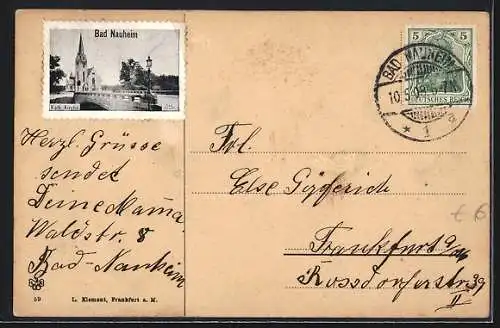 Bad Nauheim
Kath. Kirche
5
DEUTSCHES REICH
BAD-NAUHEIM
10.5.09
* 1 a
Herzl. Grüsse
sendet
Deine Mama
Waldstr. 8
Bad-Nauheim
59 L. Klement, Frankfurt a. M.
Frl.
Else
Frankfurt a/M
Rossdorferstr. 39
II
€ 6